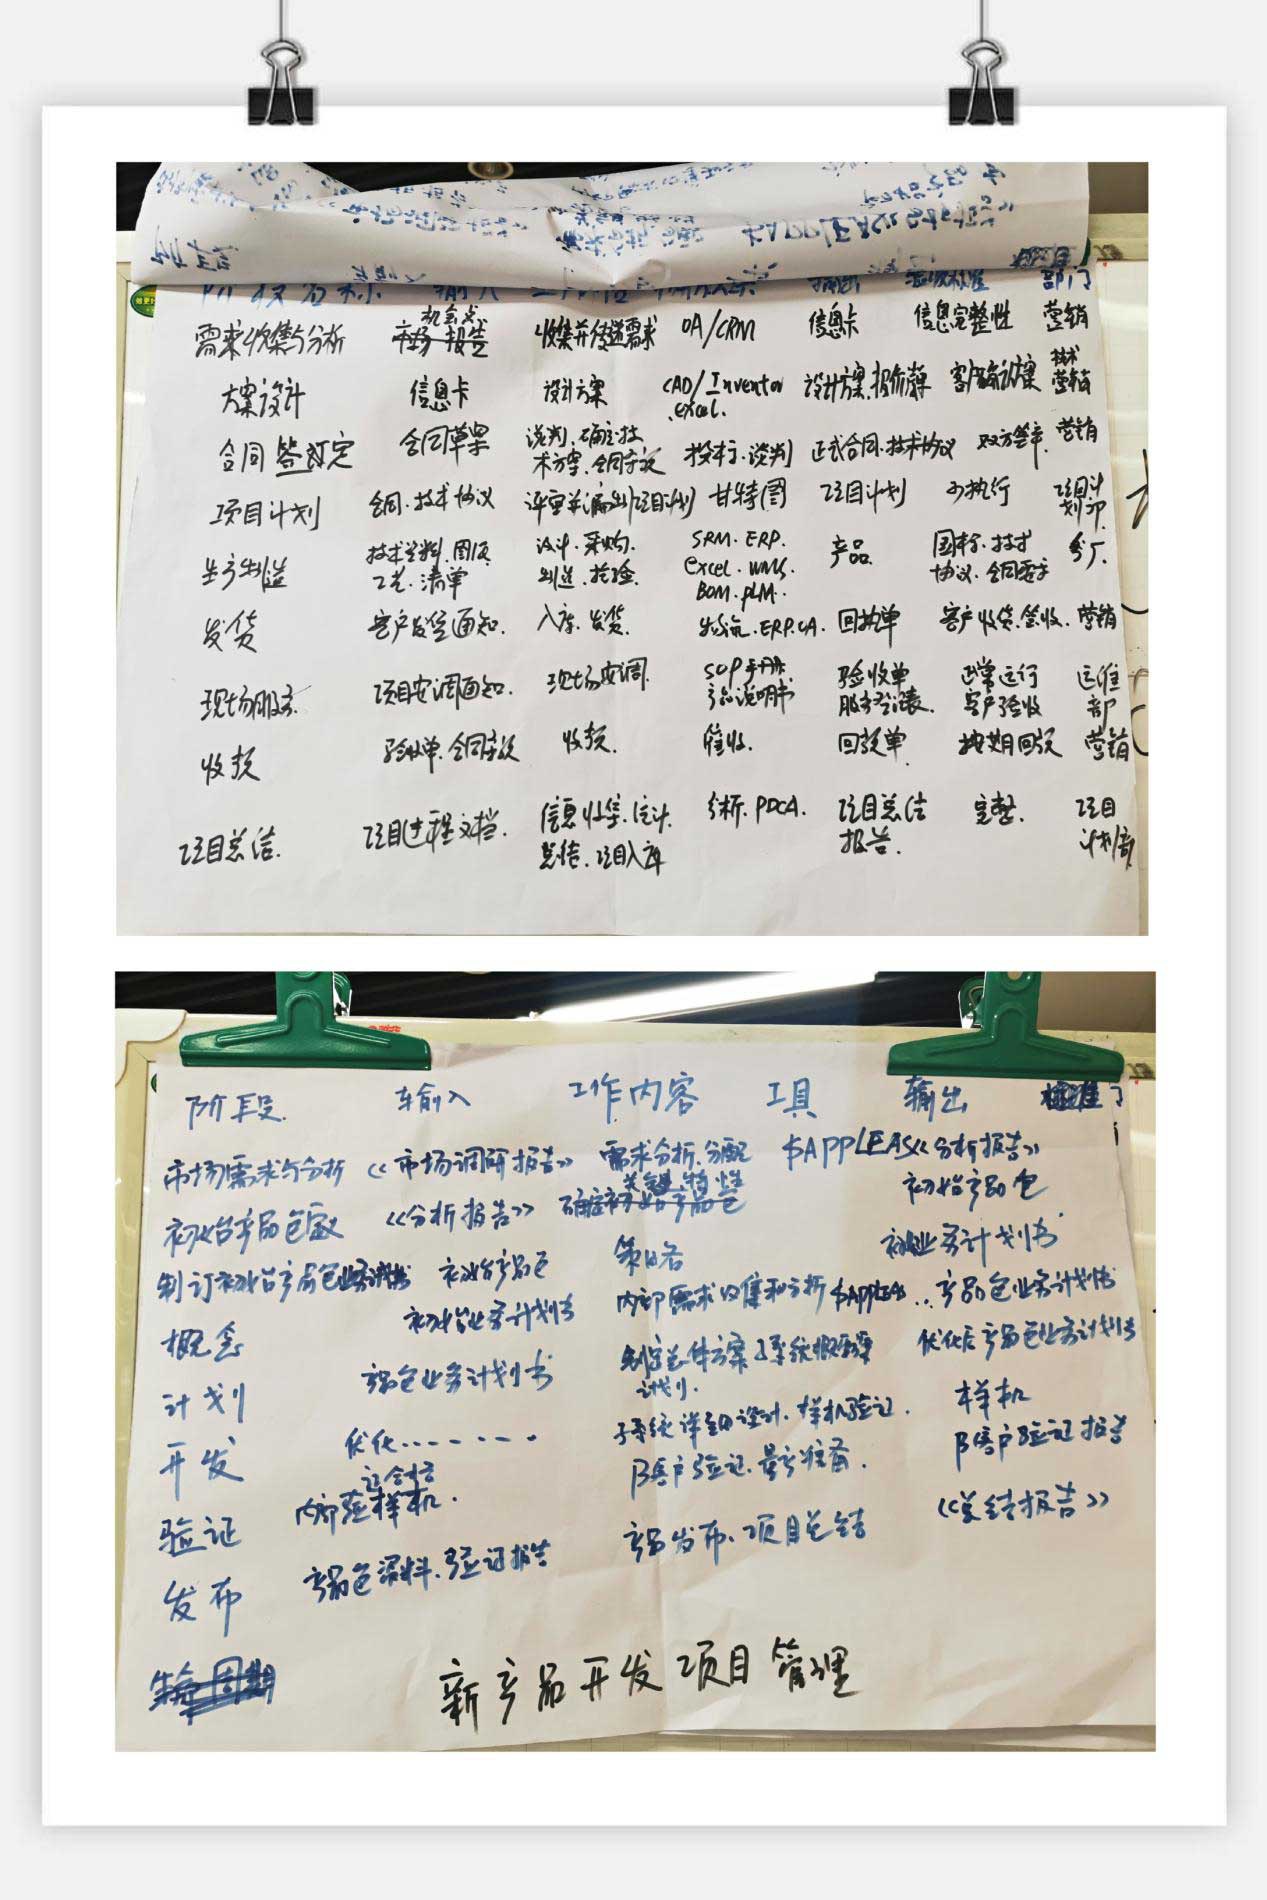 阶段名称 输入 输出 验收标准 部门
需求收集与分析 机会点 市场报告 收集并传递需求 OA/CRM 信息卡 信息完整性 营销
方案设计 信息卡 设计方案 CAD/Inventor excel. 设计方案.报价清单 客户确认方案 技术 营销
合同签订定 合同草案 谈判.确定技术方案.合同条款 投标.谈判 正式合同.技术协议 双方签字. 营销
项目计划 合同.技术协议 评审并输出项目计划 甘特图 项目计划 可执行 项目计划部.
生产制造 技术资料.图纸 工艺.清单 设计.采购. 制造.检验 SRM.ERP. excel.WMS. BOM.PLM. 产品 国标.技术协议.合同要求 分厂.
发货 客户发货通知. 入库.发货. 物流.ERP.OA. 回执单 客户收货.签收. 营销
现场服务 项目安调通知. 现场安调. SOP手册. 产品说明书 验收单 服务登记表. 正常运行 客户验收 运维部
收款 验收单.合同条款 收款. 催收. 回款单 按期回款 营销
项目总结. 项目过程文档. 信息收集.统计. 总结.项目入库 分析.PDCA. 项目总结报告. 完整. 项目计划部
阶段. 输入 工作内容 工具 输出 标准
市场需求与分析 《市场调研报告》 需求分析.分配 $APPLEAS 《分析报告》
初始产品包定义 《分析报告》 确定初始产品包 关键特性 初始产品包
制订初始产品包业务计划书 初始产品包 策略 初始业务计划书
概念 初始业务计划书 内部需求收集和分析 $APPLEAS ... 产品包业务计划书
计划 产品包业务计划书 制定总体方案及系统概要 计划. 优化后产品包业务计划书
开发 优化....... 子系统详细设计.样机验证. 样机
验证 内部验证合格样机. β客户验证.量产准备. β客户验证报告
发布 产品包资料.验证报告 产品发布.项目总结 《总结报告》
生命周期
新产品开发项目管理